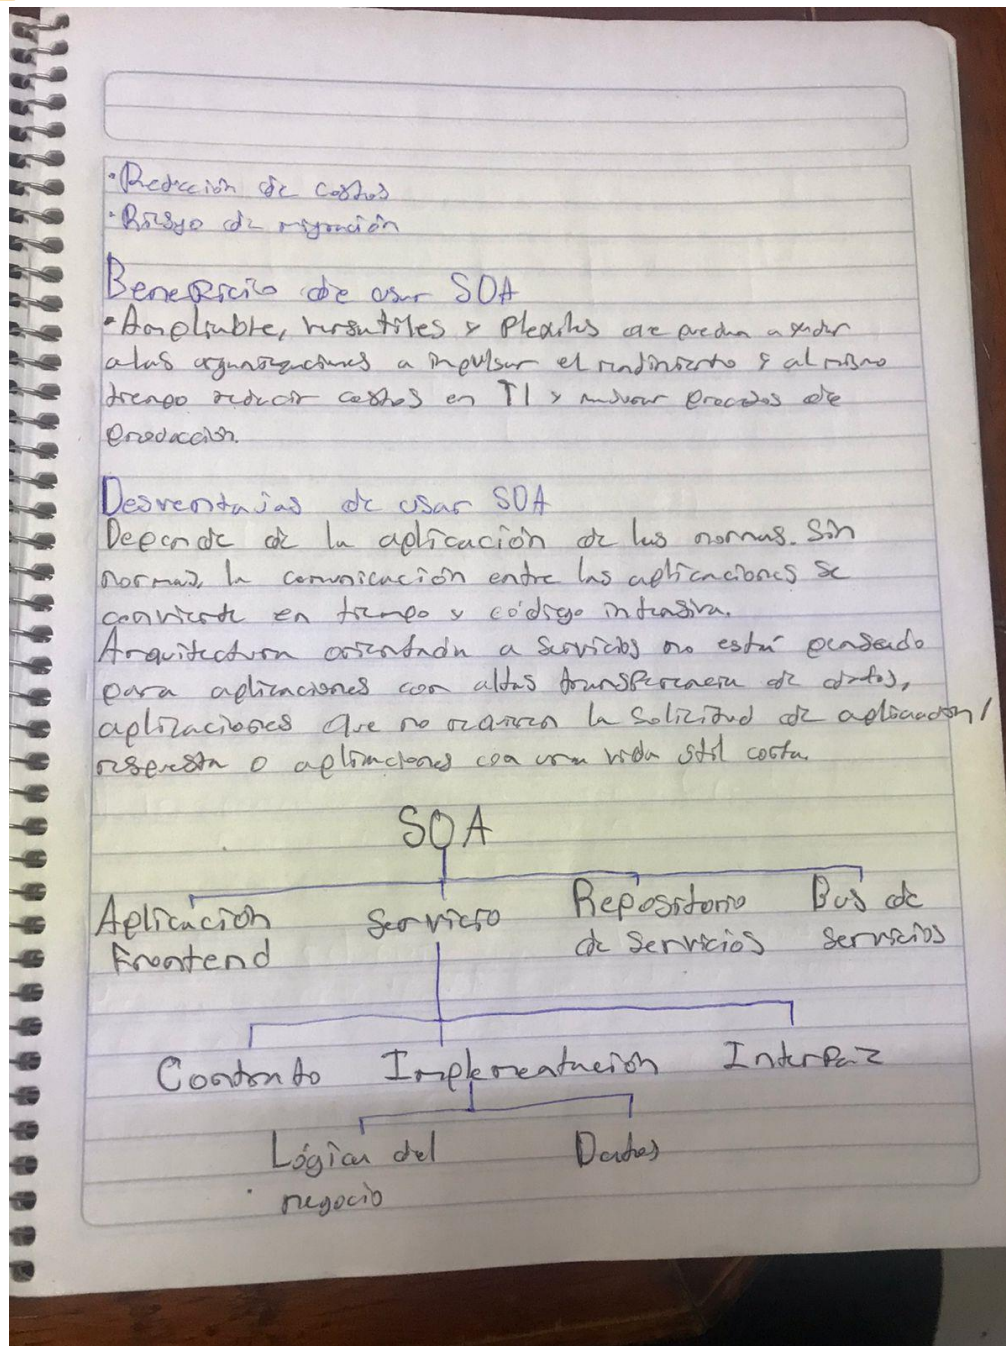 • Reducción de costos
• Riesgo de migración
Beneficio de usar SOA
• Ampliable, versátiles y flexibles que puedan ayudar
a las organizaciones a impulsar el rendimiento y al mismo
tiempo reducir costos en TI y procesos de
producción.
Desventajas de usar SOA
Depende de la aplicación de las normas. Sin
normas, la comunicación entre las aplicaciones se
convierte en tiempo y código intensiva.
Arquitectura orientada a servicios no está pensado
para aplicaciones con altas transferencia de datos,
aplicaciones que no requieren la solicitud de aplicación/
respuesta o aplicaciones con una vida útil corta.
SOA
Aplicación Servicio Repositorio Bus de
Frontend de servicios servicios
Contrato Implementación Interfaz
Lógica del Datos
negocio